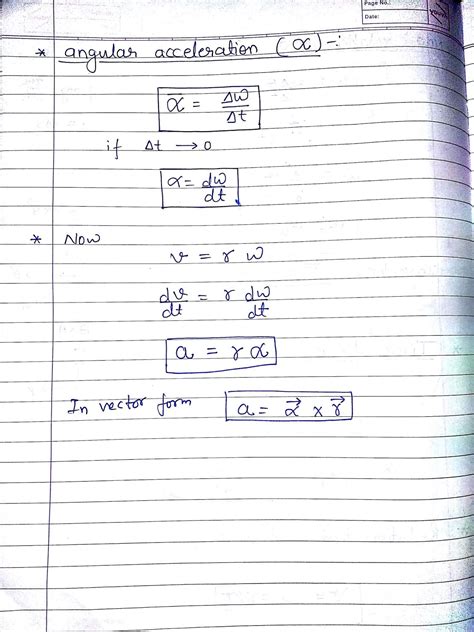 Page No.:
Date:
* angular acceleration (α) -:
ᾱ = Δω/Δt
if Δt → 0
α = dω/dt
* Now
v = r ω
dv/dt = r dω/dt
a = r α
In vector form a = α⃗ × r⃗